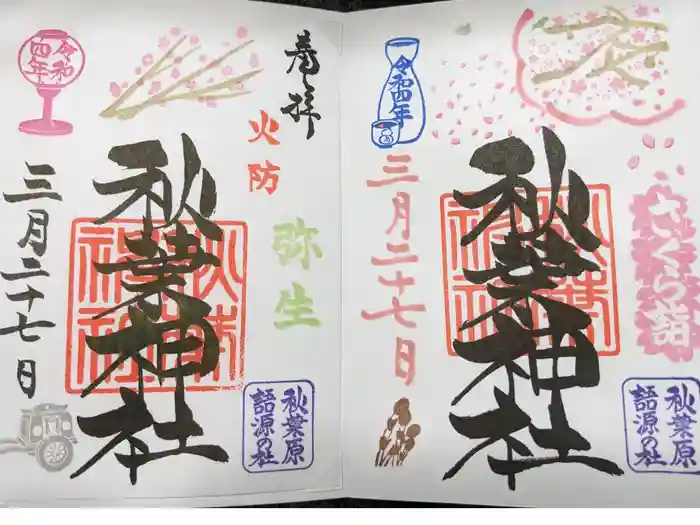 奉拝
火防
弥生
令和
四年
秋葉神社
三月二十七日
秋葉原
語源の社
さくら詣
令和四年
秋葉神社
三月二十七日
秋葉原
語源の社